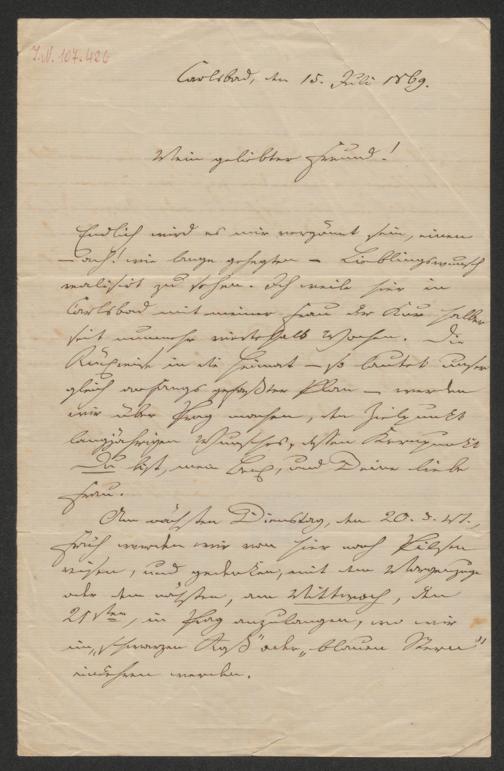 J.N. 107.426
Carlsbad, den 15. Juli 1869.
Mein geliebter Freund!
Endlich wird es mir vergönnt sein, einen
– ach! wie lange gehegten – Lieblingswunsch
realisirt zu sehen. Ich weile hier in
Carlsbad mit meiner Frau der Kur halber
seit nunmehr vierthalb Wochen. Die
Rückreise in die Heimat – so lautet unser
gleich anfangs gefaßter Plan – werden
wir über Prag machen, den Zielpunkt
langjährigen Wunsches, dessen Kernpunkt
Du bist, mein, und Deine liebe
Frau.
Am nächsten Dienstag, den 20. d. Mt.,
früh werden wir von hier nach Pilsen
reisen, und gedenken, mit dem Morgenzuge
oder dem nächsten, am Mittwoch, den
21sten, in Prag anzulangen, wo wir
im „schwarzen Roß" oder „blauen Stern"
einkehren werden.